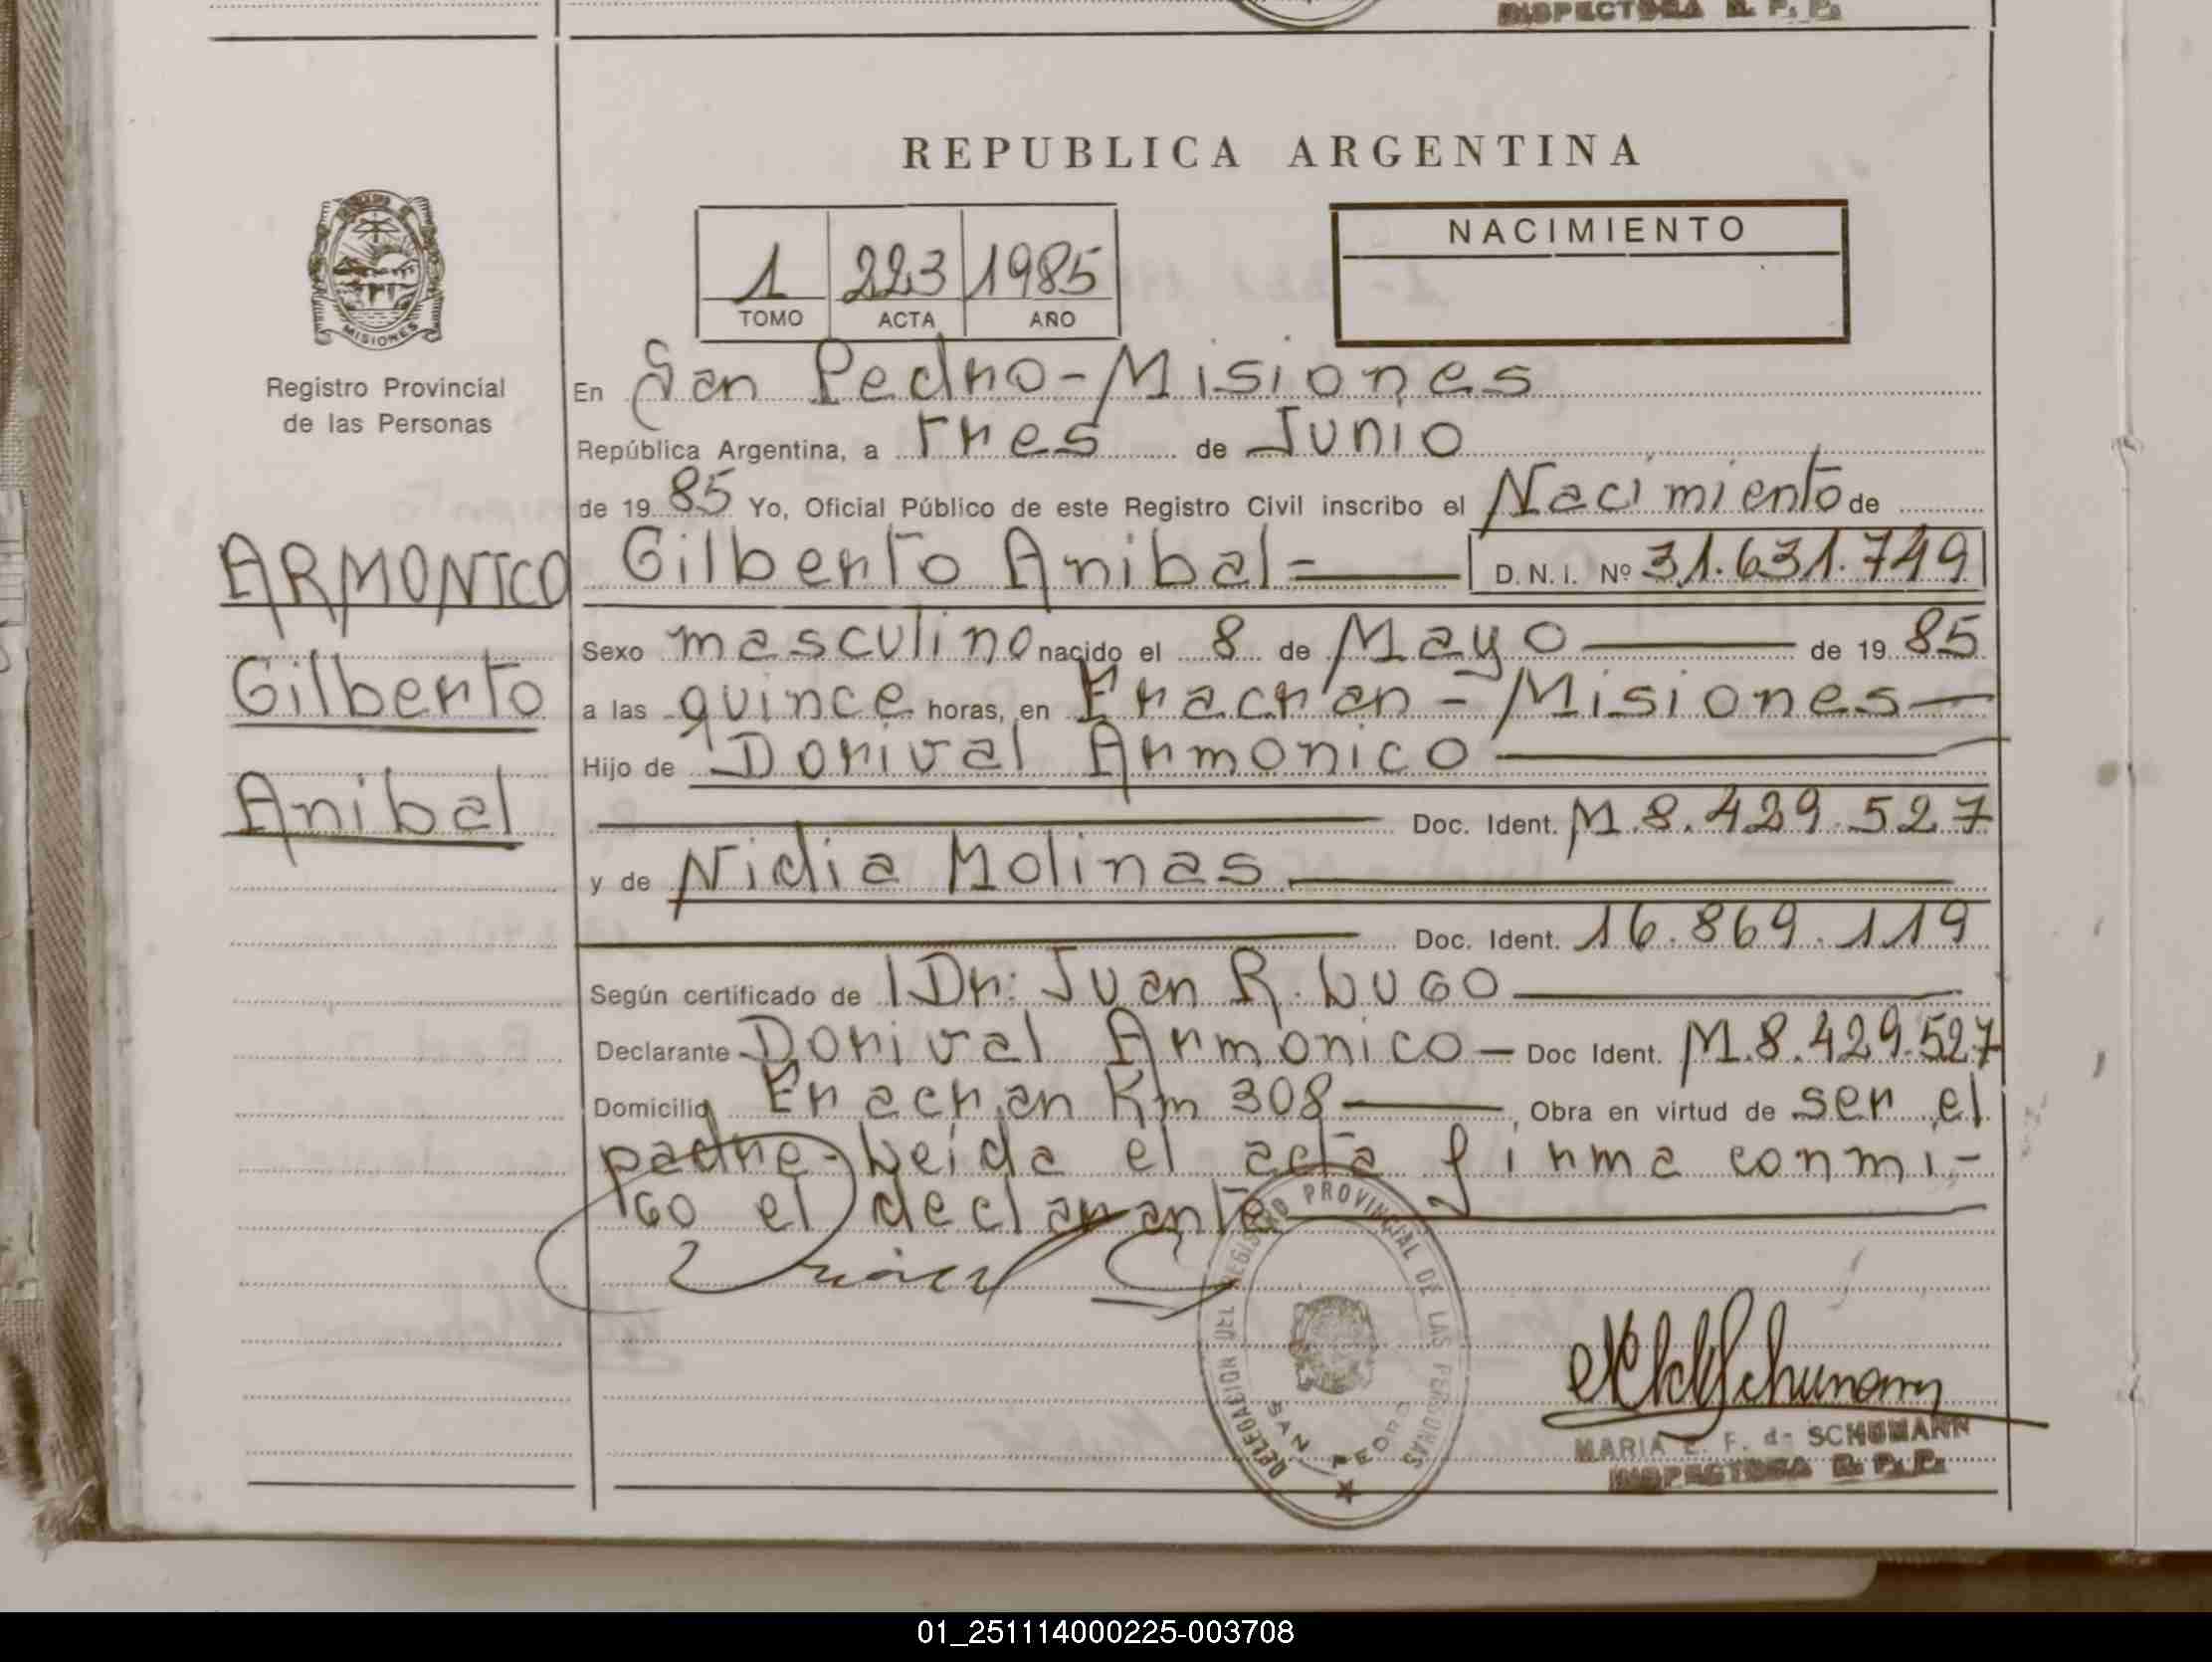 INSPECTORA R. P. P.
REPUBLICA ARGENTINA
NACIMIENTO
1 223 1985
TOMO ACTA AÑO
MISIONES
Registro Provincial
de las Personas
En San Pedro-Misiones
República Argentina, a tres de Junio
de 1985 Yo, Oficial Público de este Registro Civil inscribo el Nacimiento de
ARMONICO Gilberto Anibal= D.N.I. Nº 31.631.749
Sexo masculino nacido el 8 de Mayo de 1985
Gilberto a las quince horas, en Eracran = Misiones
Hijo de Dorival Armonico
Anibal Doc. Ident. M.8.429.527
y de Nidia Molinas
Doc. Ident. 16.869.119
Según certificado de Dr: Juan R. Lugo
Declarante Dorival Armonico Doc Ident. M.8.429.527
Domicilio Eracran Km 308, Obra en virtud de ser el
padre-Leida el acta firma conmi-
go el declarante
DELEGACION DEL REGISTRO PROVINCIAL DE LAS PERSONAS
SAN PEDRO
MARIA E. F. de SCHUMANN
INSPECTORA R. P. P.
01_251114000225-003708